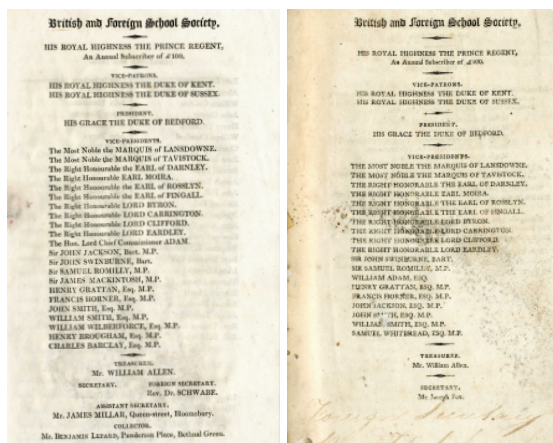 British and Foreign School Society.
HIS ROYAL HIGHNESS THE PRINCE REGENT,
An Annual Subscriber of £100.
VICE-PATRONS.
HIS ROYAL HIGHNESS THE DUKE OF KENT.
HIS ROYAL HIGHNESS THE DUKE OF SUSSEX.
PRESIDENT.
HIS GRACE THE DUKE OF BEDFORD.
VICE-PRESIDENTS.
The Most Noble the MARQUIS of LANSDOWNE.
The Most Noble the MARQUIS of TAVISTOCK.
The Right Honourable the EARL of DARNLEY.
The Right Honourable EARL MOIRA.
The Right Honourable the EARL of ROSSLYN.
The Right Honourable the EARL of FINGALL.
The Right Honourable LORD BYRON.
The Right Honourable LORD CARRINGTON.
The Right Honourable LORD CLIFFORD.
The Right Honourable LORD EARDLEY.
The Hon. Lord Chief Commissioner ADAM.
Sir JOHN JACKSON, Bart. M.P.
Sir JOHN SWINBURNE, Bart.
Sir SAMUEL ROMILLY, M.P.
Sir JAMES MACKINTOSH, M.P.
HENRY GRATTAN, Esq. M.P.
FRANCIS HORNER, Esq. M.P.
JOHN SMITH, Esq. M.P.
WILLIAM SMITH, Esq. M.P.
WILLIAM WILBERFORCE, Esq. M.P.
HENRY BROUGHAM, Esq. M.P.
CHARLES BARCLAY, Esq. M.P.
TREASURER.
Mr. WILLIAM ALLEN.
SECRETARY. FOREIGN SECRETARY.
Rev. Dr. SCHWABE.
ASSISTANT SECRETARY.
Mr. JAMES MILLAR, Queen-street, Bloomsbury.
COLLECTOR.
Mr. BENJAMIN LEPARD, Punderson Place, Bethnal Green.
British and Foreign School Society.
HIS ROYAL HIGHNESS THE PRINCE REGENT,
An Annual Subscriber of £100.
VICE-PATRONS.
HIS ROYAL HIGHNESS THE DUKE OF KENT.
HIS ROYAL HIGHNESS THE DUKE OF SUSSEX.
PRESIDENT.
HIS GRACE THE DUKE OF BEDFORD.
VICE-PRESIDENTS.
THE MOST NOBLE THE MARQUIS OF LANSDOWNE.
THE MOST NOBLE THE MARQUIS OF TAVISTOCK.
THE RIGHT HONORABLE THE EARL OF DARNLEY.
THE RIGHT HONORABLE EARL MOIRA.
THE RIGHT HONORABLE THE EARL OF ROSSLYN.
THE RIGHT HONORABLE THE EARL OF FINGALL.
THE RIGHT HONORABLE LORD BYRON.
THE RIGHT HONORABLE LORD CARRINGTON.
THE RIGHT HONORABLE LORD CLIFFORD.
THE RIGHT HONORABLE LORD EARDLEY.
SIR JOHN SWINBURNE, BART.
SIR SAMUEL ROMILLY, M.P.
WILLIAM ADAM, ESQ.
HENRY GRATTAN, ESQ. M.P.
FRANCIS HORNER, ESQ. M.P.
JOHN JACKSON, ESQ. M.P.
JOHN SMITH, ESQ. M.P.
WILLIAM SMITH, ESQ. M.P.
SAMUEL WHITBREAD, ESQ. M.P.
TREASURER.
Mr. William Allen.
SECRETARY.
Mr. Joseph Fox.